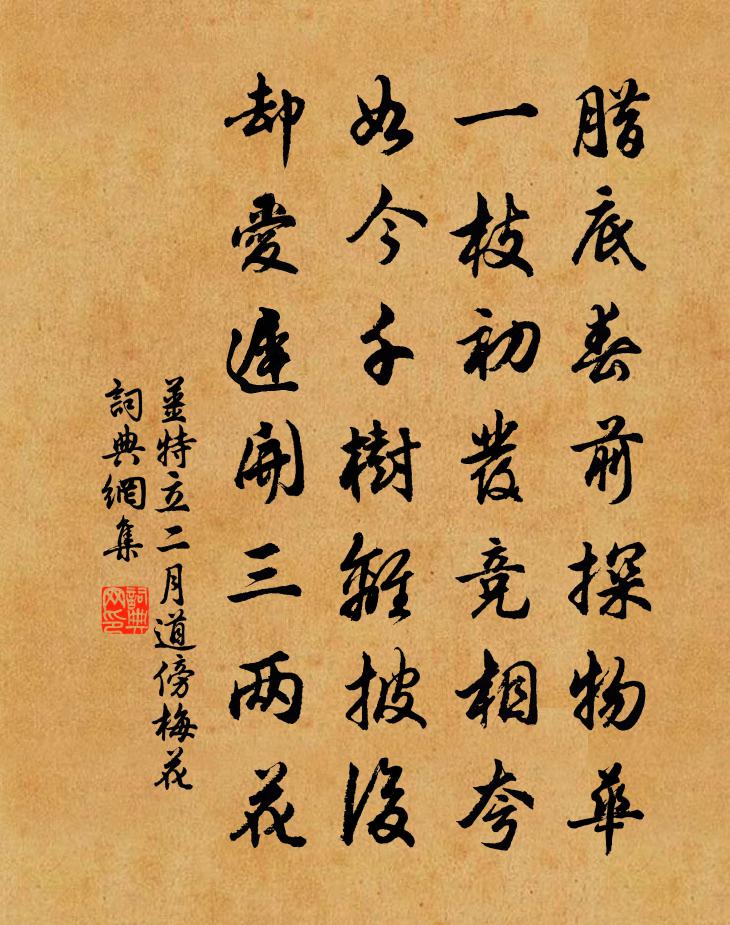 腊底春前探物華
一枝初發竞相夸
如今千樹離披後
却愛遲開三两花
姜特立二月道傍梅花
詞典網集
詞典网印